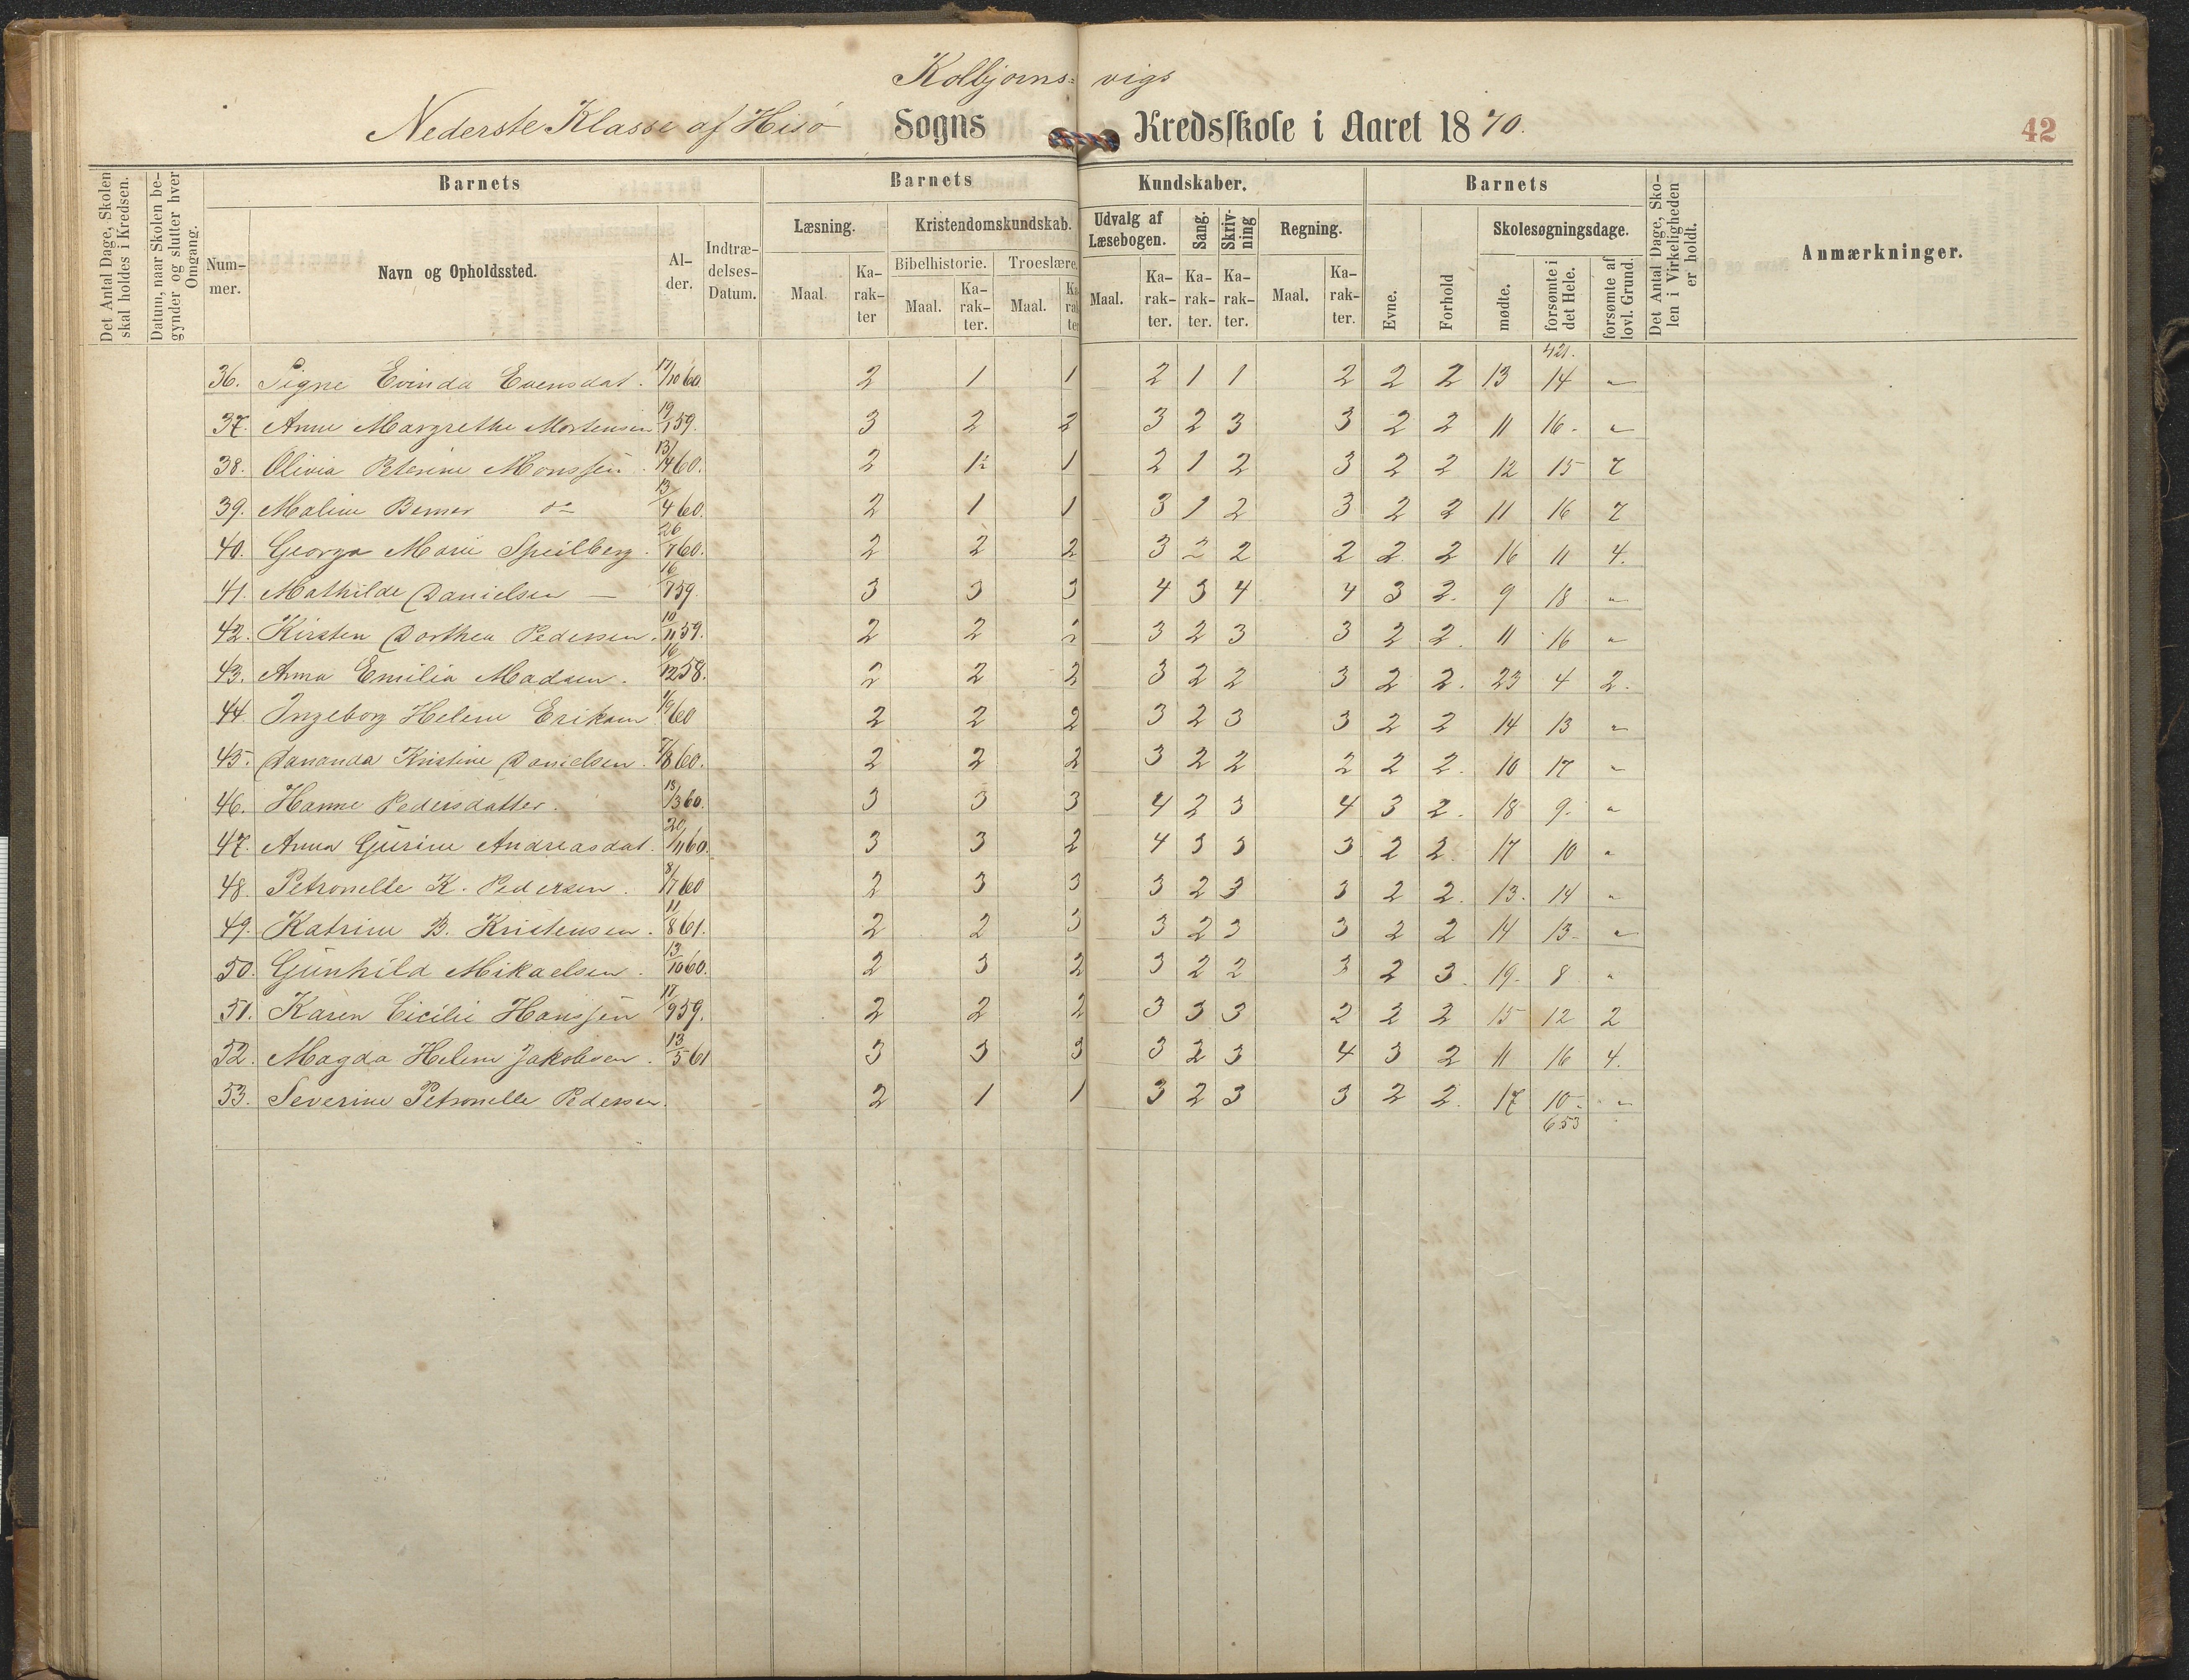 Kolbjørns= vigs
Nederste Klasse af Hisø Sogns Kredsskole i Aaret 1870.
42
Det Antal Dage, Skolen skal holdes i Kredsen.
Datum, naar Skolen begynder og slutter hver Omgang.
Barnets
Barnets Kundskaber.
Barnets
Det Antal Dage, Skolen i Virkeligheden er holdt.
Anmærkninger.
Num-mer.
Navn og Opholdssted.
Al-der.
Indtræ-delses-Datum.
Læsning.
Kristendomskundskab.
Udvalg af Læsebogen.
Sang.
Skriv-ning
Regning.
Evne.
Forhold
Skolesøgningsdage.
Bibelhistorie.
Troeslære.
Maal.
Ka-rak-ter
Maal.
Ka-rak-ter.
Maal.
Ka-rak-ter
Maal.
Ka-rak-ter.
Ka-rak-ter.
Ka-rak-ter.
Maal.
Ka-rak-ter.
mødte.
forsømte i det Hele.
forsømte af lovl. Grund.
421.
36. Signe Evinda Evensdat. 17/10 60 2 1 1 2 1 1 2 2 2 13 14 "
37. Anne Margrethe Mortensen 19/1 59. 3 2 2 3 2 3 3 2 2 11 16. "
38. Olivia Peterine Monssen. 13/4 60. 2 1½ 1 2 1 2 3 2 2 12 15 7
39. Maline Berner do 13/4 60. 2 1 1 3 1 2 3 2 2 11 16 7
40. Georga Marie Speilberg. 26/7 60. 2 2 2 3 2 2 2 2 2 16 11 4.
41. Mathilde Danielsen — 16/7 59. 3 3 3 4 3 4 4 3 2. 9 18 "
42. Kirsten Dorthea Pedersen. 10/11 59. 2 2 2 3 2 3 3 2 2. 11 16 "
43. Anna Emilia Madsen. 16/12 58. 2 2 2 3 2 2 3 2 2. 23 4 2.
44. Ingeborg Helene Eriksen /9 60 2 2 2 3 2 3 3 2 2 14 13 "
45. Dananda Kristine Danielsen. 7/8 60. 2 2 2 3 2 2 2 2 2. 10 17 "
46. Hanne Pedersdatter. 13/3 60. 3 3 3 4 2 3 4 3 2. 18 9. "
47. Anna Gurine Andreasdat. 20/11 60. 3 3 2 4 3 3 3 2 2. 17 10 "
48. Petronelle K. Pedersen. 8/7 60 2 3 3 3 2 3 3 2 2. 13. 14 "
49. Katrine B. Kristensen. 11/8 61. 2 2 3 3 2 3 3 2 2 14 13 "
50. Gunhild Mikaelsen. 13/10 60. 2 3 2 3 2 2 3 2 3. 19. 8 "
51. Karen Cicilie Hanssen 11/9 59. 2 2 2 3 3 3 2 2 2 15 12 2
52. Magda Helene Jakobsen. 13/5 61 3 3 3 3 2 3 4 3 2 11 16 4.
53. Severine Petronelle Pedersen. 2 1 1 3 2 3 3 2 2. 17 10. "
653